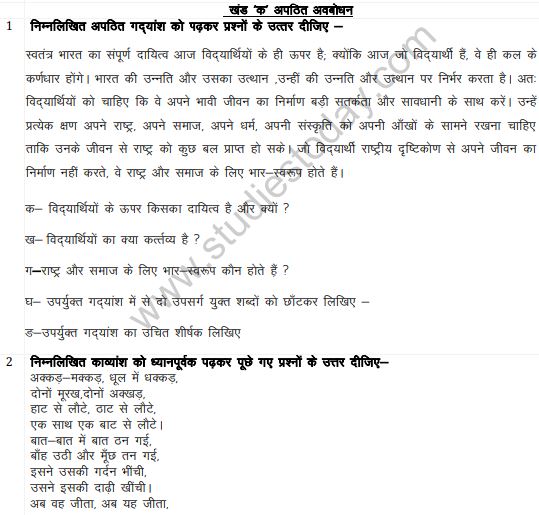 खंड ‘क’ अपठित अवबोधन
1 निम्नलिखित अपठित गद्‌यांश को पढ़कर प्रश्नों के उत्तर दीजिए –
स्वतंत्र भारत का संपूर्ण दायित्व आज विद्‌यार्थियों के ही ऊपर है; क्योंकि आज जो विद्‌यार्थी हैं, वे ही कल के
कर्णधार होंगे। भारत की उन्नति और उसका उत्थान ,उन्हीं की उन्नति और उत्थान पर निर्भर करता है। अतः
विद्‌यार्थियों को चाहिए कि वे अपने भावी जीवन का निर्माण बड़ी सतर्कता और सावधानी के साथ करें। उन्हें
प्रत्येक क्षण अपने राष्ट्र, अपने समाज, अपने धर्म, अपनी संस्कृति को अपनी आँखों के सामने रखना चाहिए
ताकि उनके जीवन से राष्ट्र को कुछ बल प्राप्त हो सके। जो विद्‌यार्थी राष्ट्रीय दृष्टिकोण से अपने जीवन का
निर्माण नहीं करते, वे राष्ट्र और समाज के लिए भार–स्वरूप होते हैं।
क– विद्‌यार्थियों के ऊपर किसका दायित्व है और क्यों ?
ख– विद्‌यार्थियों का क्या कर्त्तव्य है ?
ग–राष्ट्र और समाज के लिए भार–स्वरूप कौन होते हैं ?
घ– उपर्युक्त गद्‌यांश में से दो उपसर्ग युक्त शब्दों को छाँटकर लिखिए –
ङ–उपर्युक्त गद्‌यांश का उचित शीर्षक लिखिए
2 निम्नलिखित काव्यांश को ध्यानपूर्वक पढ़कर पूछे गए प्रश्नों के उत्तर दीजिए–
अक्कड़–मक्कड़, धूल में धक्कड़,
दोनों मूरख,दोनों अक्खड़,
हाट से लौटे, ठाट से लौटे,
एक साथ एक बाट से लौटे।
बात–बात में बात ठन गई,
बाँह उठी और मूँछ तन गई,
इसने उसकी गर्दन भींची,
उसने इसकी दाढ़ी खींची।
अब वह जीता, अब यह जीता,
www.studiestoday.com